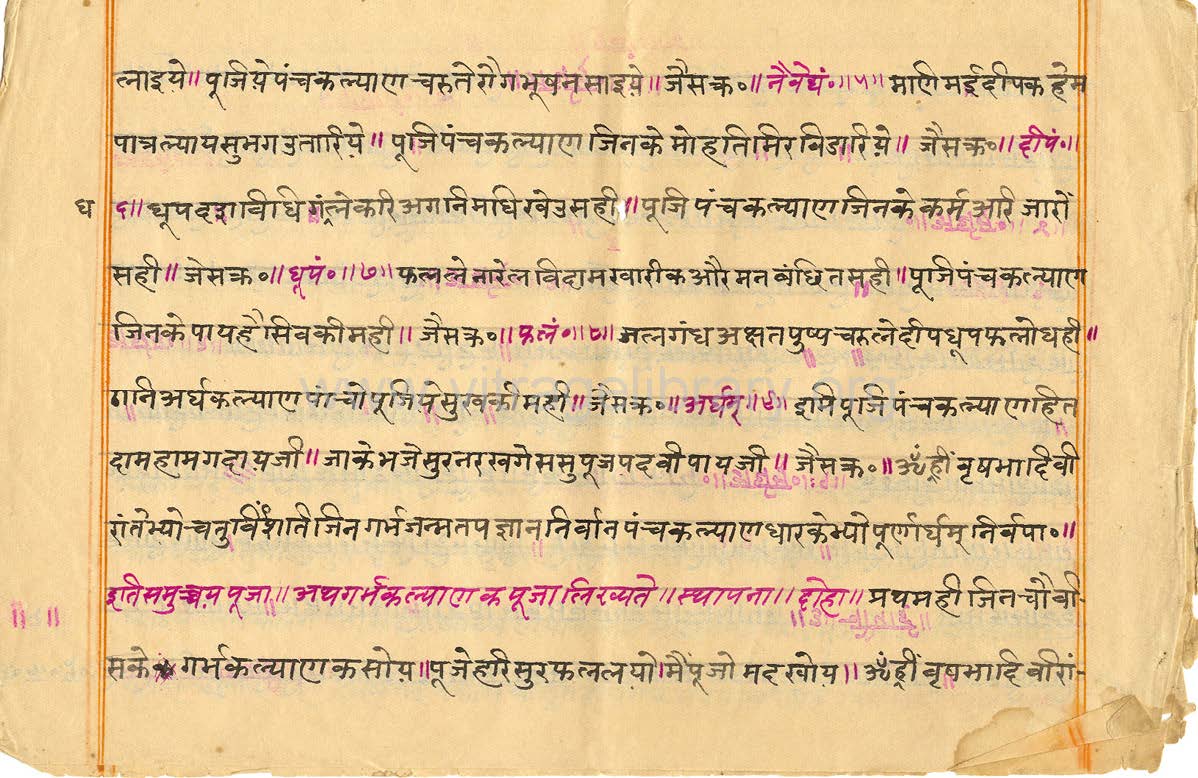 ल्याइये॥ पूजिये पंचकल्याण चरुतै रोगभूषन साइये॥ जैसक्र०॥ नैवेद्यं०॥५॥ माणिमई दीपक हेम
पात्र ल्याय सुभग उतारिये॥ पूजि पंचकल्याण जिनके मोहतिमिर विडारिये॥ जैसक्र०॥ दीपं०॥
ध ६॥ धूप दशविधि गंलेकरि अगनिमधि खेउ सही॥ पूजि पंचकल्याण जिनके कर्म अरि जारों
सही॥ जेसक्र०॥ धूपं०॥७॥ फल ले नारेल विदाम खारीक और मनवंछित सही॥ पूजि पंचकल्याण
जिनके पाय है सिव की मही॥ जैसक्र०॥ फलं०॥८॥ जल गंध अक्षत पुष्प चरु ले दीप धूप फलोघही॥
गनि अर्घ कल्याण पाचो पूजिये सुख की मही॥ जैसक्र०॥ अर्घम्॥९॥ इमि पूजि पंचकल्याण हित
दा महामगदाय जी॥ जाके भजे सुर नर खगेस सु पूज पदवी पाय जी॥ जैसक्र०॥ ॐ ह्रीं वृषभादि वी
रांतेभ्यो चतुर्विंशति जिन गर्भ जन्म तप ज्ञान निर्वान पंचकल्याण धारकेभ्यो पूर्णार्घम् निर्वपा०॥
इति समुच्चय पूजा॥ अथ गर्भकल्याणक पूजा लिख्यते॥ स्थापना॥ दोहा॥ प्रथमही जिन चौवी-
सके गर्भकल्याणक सोय॥ पूजे हरि सुर फल लयो। मैं पूजो मद खोय॥ ॐ ह्रीं वृषभादि वीरां-
www.vitragelibrary.org